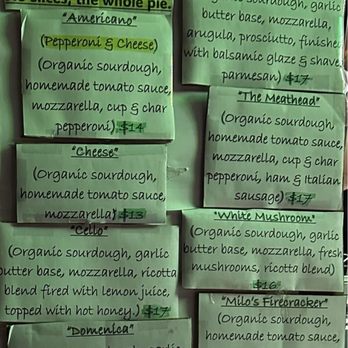 slices, the whole pie.
"Americano"
(Pepperoni & Cheese)
(Organic sourdough,
homemade tomato sauce,
mozzarella, cup & char
pepperoni) $14
"Cheese"
(Organic sourdough,
homemade tomato sauce,
mozzarella) $13
"Cello"
(Organic sourdough, garlic
butter base, mozzarella, ricotta
blend fired with lemon juice,
topped with hot honey.) $17
"Domenica"
(Organic sourdough, garlic
butter base, mozzarella,
arugula, prosciutto, finished
with balsamic glaze & shaved
parmesan) $17
"The Meathead"
(Organic sourdough,
homemade tomato sauce,
mozzarella, cup & char
pepperoni, ham & Italian
sausage) $17
"White Mushroom"
(Organic sourdough, garlic
butter base, mozzarella, fresh
mushrooms, ricotta blend)
$16
"Milo's Firecracker"
(Organic sourdough,
homemade tomato sauce,